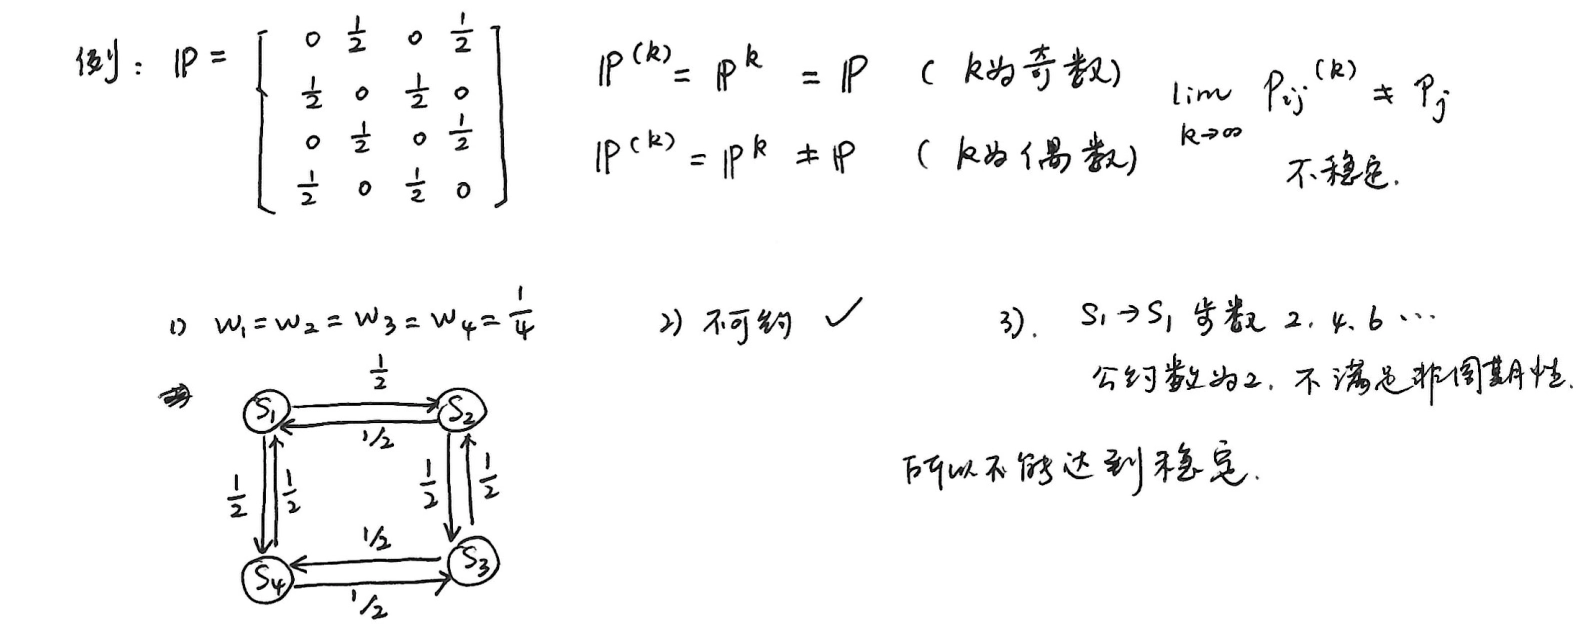 例: ℙ = [ 0 1/2 0 1/2
1/2 0 1/2 0
0 1/2 0 1/2
1/2 0 1/2 0 ]
ℙ^(k) = ℙ^k = ℙ ( k为奇数)
ℙ^(k) = ℙ^k ≠ ℙ ( k为偶数)
lim k→∞ P_ij^(k) ≠ P_j
不稳定.
1) W₁=W₂=W₃=W₄=1/4
2) 不可约 ✓
3). S₁→S₁ 步数 2, 4, 6 ⋯
公约数为2, 不满足非周期性.
所以不能达到稳定.
1/2
S₁ S₂
1/2
1/2 1/2 1/2 1/2
1/2
S₄ S₃
1/2